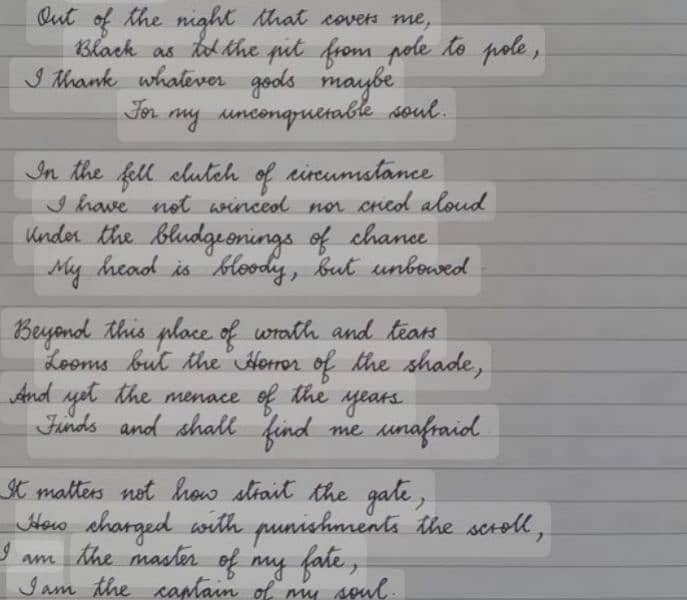 Out of the night that covers me,
Black as the pit from pole to pole,
I thank whatever gods maybe
For my unconquerable soul.
In the fell clutch of circumstance
I have not winced nor cried aloud
Under the bludgeonings of chance
My head is bloody, but unbowed
Beyond this place of wrath and tears
Looms but the Horror of the shade,
And yet the menace of the years
Finds and shall find me unafraid
It matters not how strait the gate,
How charged with punishments the scroll,
I am the master of my fate,
I am the captain of my soul.